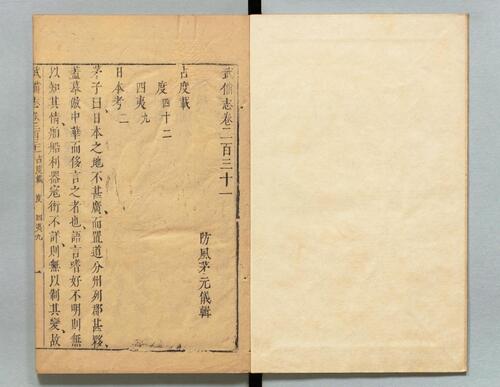 武備志卷二百三十一
防風茅元儀輯
占度載
度四十二
四夷九
日本考二
茅子曰日本之地不甚廣而置道分州列郡甚夥
蓋慕倣中華而侈言之者也語言嗜好不明則無
以知其情舶船利器寇術不詳則無以制其變故
武備志 占度載 度 四夷九 一